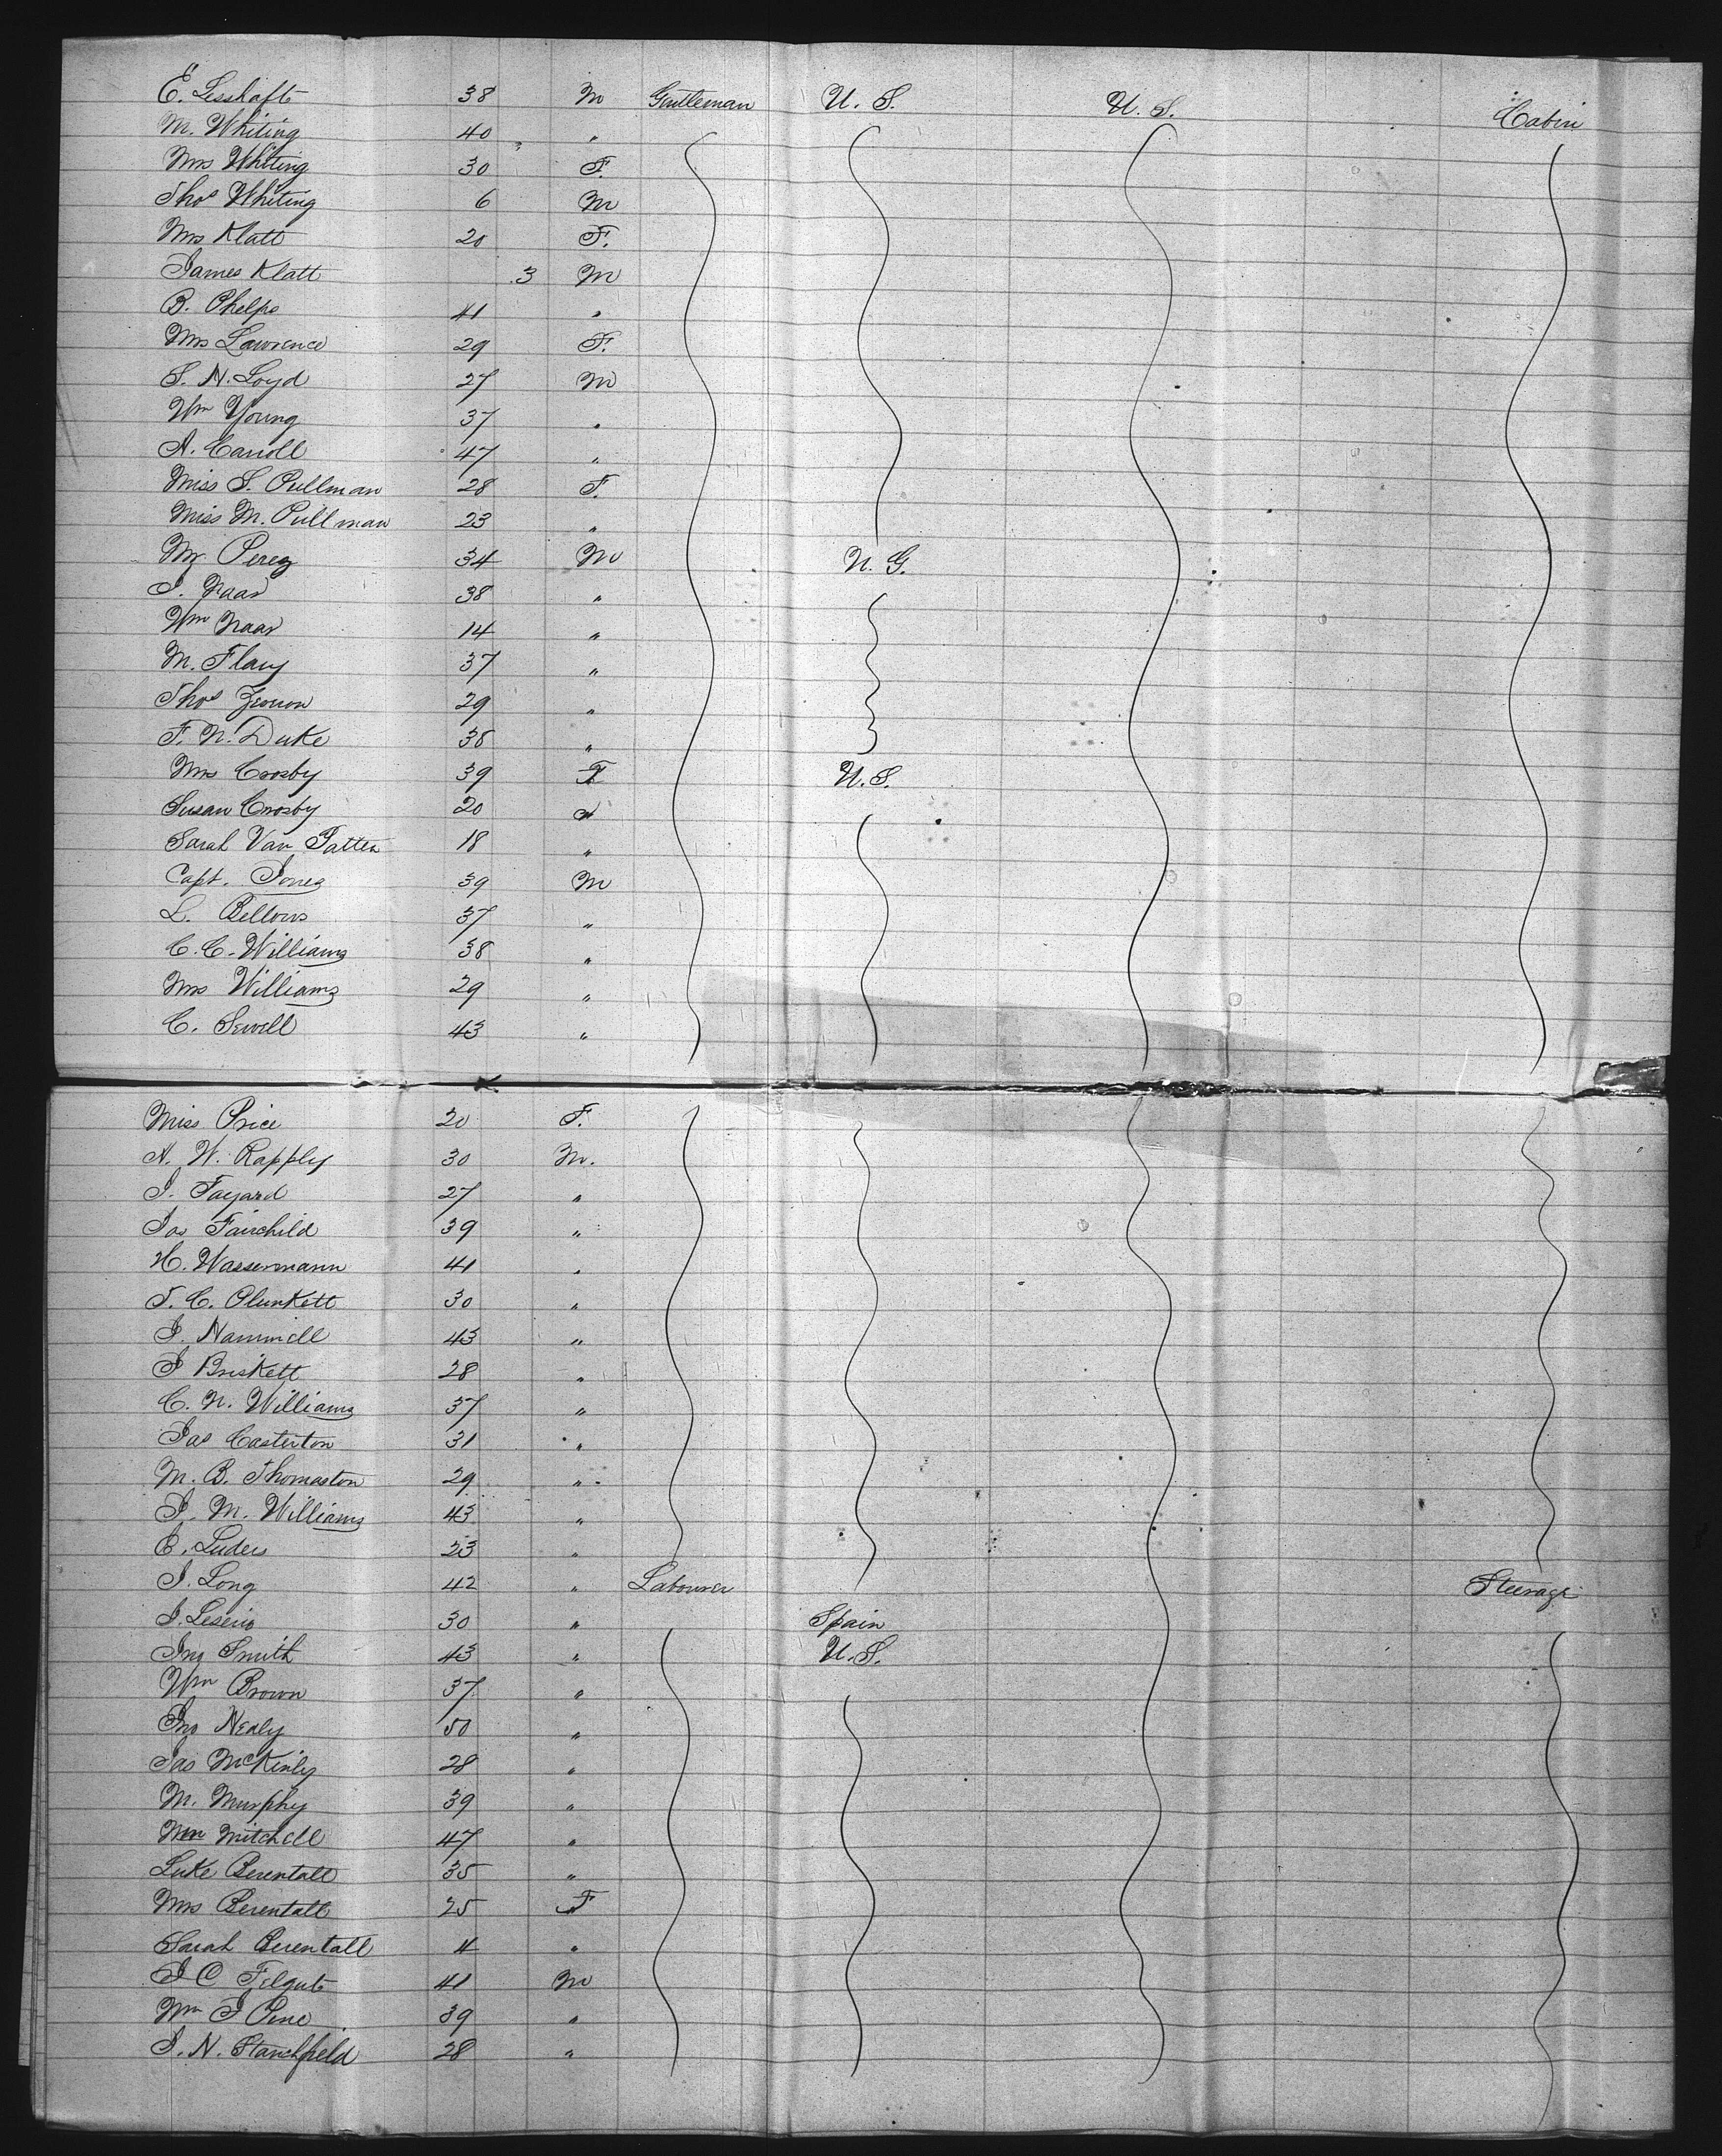 E. Lesshaft 38 M Gentleman U. S. U. S. Cabin
M. Whiting 40 "
Mrs Whiting 30 F.
Thos Whiting 6 M
Mrs Klatt 20 F.
James Klatt 3 M
B. Phelps 41 "
Mrs Lawrence 29 F.
S. N. Loyd 27 M
Wm Young 37 "
A. Carroll 47 "
Miss S. Pullman 28 F.
Miss M. Pullman 23 "
Mr Perez 34 M N. G.
J. Naar 38 "
Wm Naar 14 "
M. Flavy 37 "
Thos 29 "
F. N. Duke 38 "
Mrs Crosby 39 F U.S.
Susan Crosby 20 "
Sarah Van Patten 18 "
Capt. Jones 39 M
L. Bellows 37 "
C. C. Williams 38 "
Mrs Williams 29 "
C. Sewell 43 "
Miss Price 20 F.
A. W. Rapply 30 M.
J. Fayard 27 "
Jas Fairchild 39 "
H. Wassermann 41 "
T. C. Plunkett 30 "
J. Hammill 43 "
J Briskett 28 "
C. N. Williams 37 "
Jas Casterton 31 "
M. B. Thomaston 29 "
J. M. Williams 43 "
E. Luders 23 "
J. Long 42 " Labourer Steerage
J. 30 " Spain
Jno Smith 43 " U.S.
Wm Brown 37 "
Jno Nealy 50 "
Jas McKinly 28 "
M. Murphy 39 "
Wm Mitchell 47 "
Luke Berentall 35 "
Mrs Berentall 25 F
Sarah Berentall 4 "
J C 41 M
Wm J Pine 39 "
J. N. Stanchfield 28 "